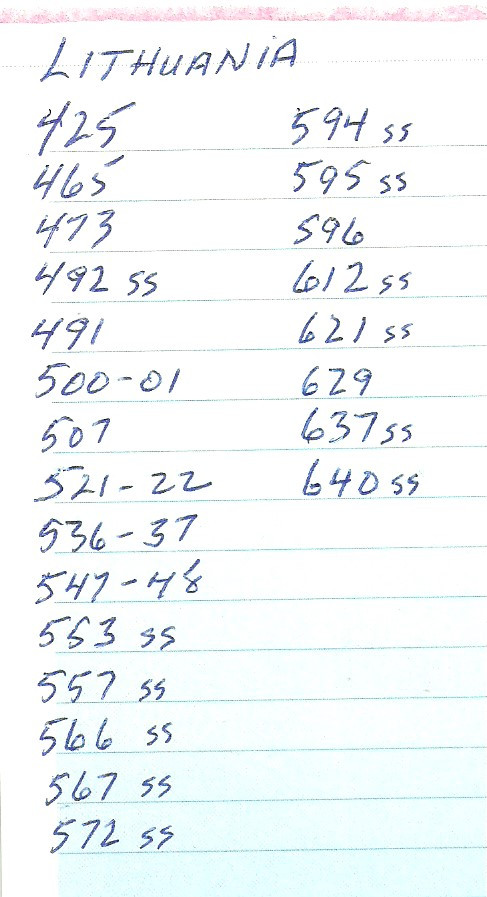 LITHUANIA
425
465
473
492 ss
491
500-01
507
521-22
536-37
547-48
553 ss
557 ss
566 ss
567 ss
572 ss
594 ss
595 ss
596
612 ss
621 ss
629
637 ss
640 ss